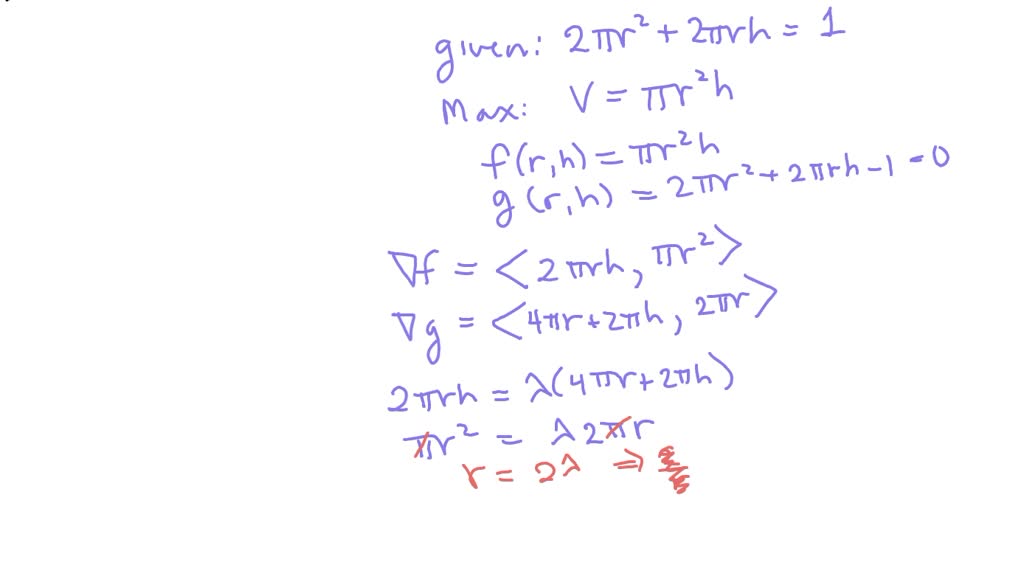 given: 2πr² + 2πrh = 1
Max: V = πr²h
f(r,h) = πr²h
g(r,h) = 2πr² + 2πrh - 1 = 0
∇f = <2πrh, πr²>
∇g = <4πr+2πh, 2πr>
2πrh = λ(4πr+2πh)
πr² = λ2πr
r = 2λ ⇒